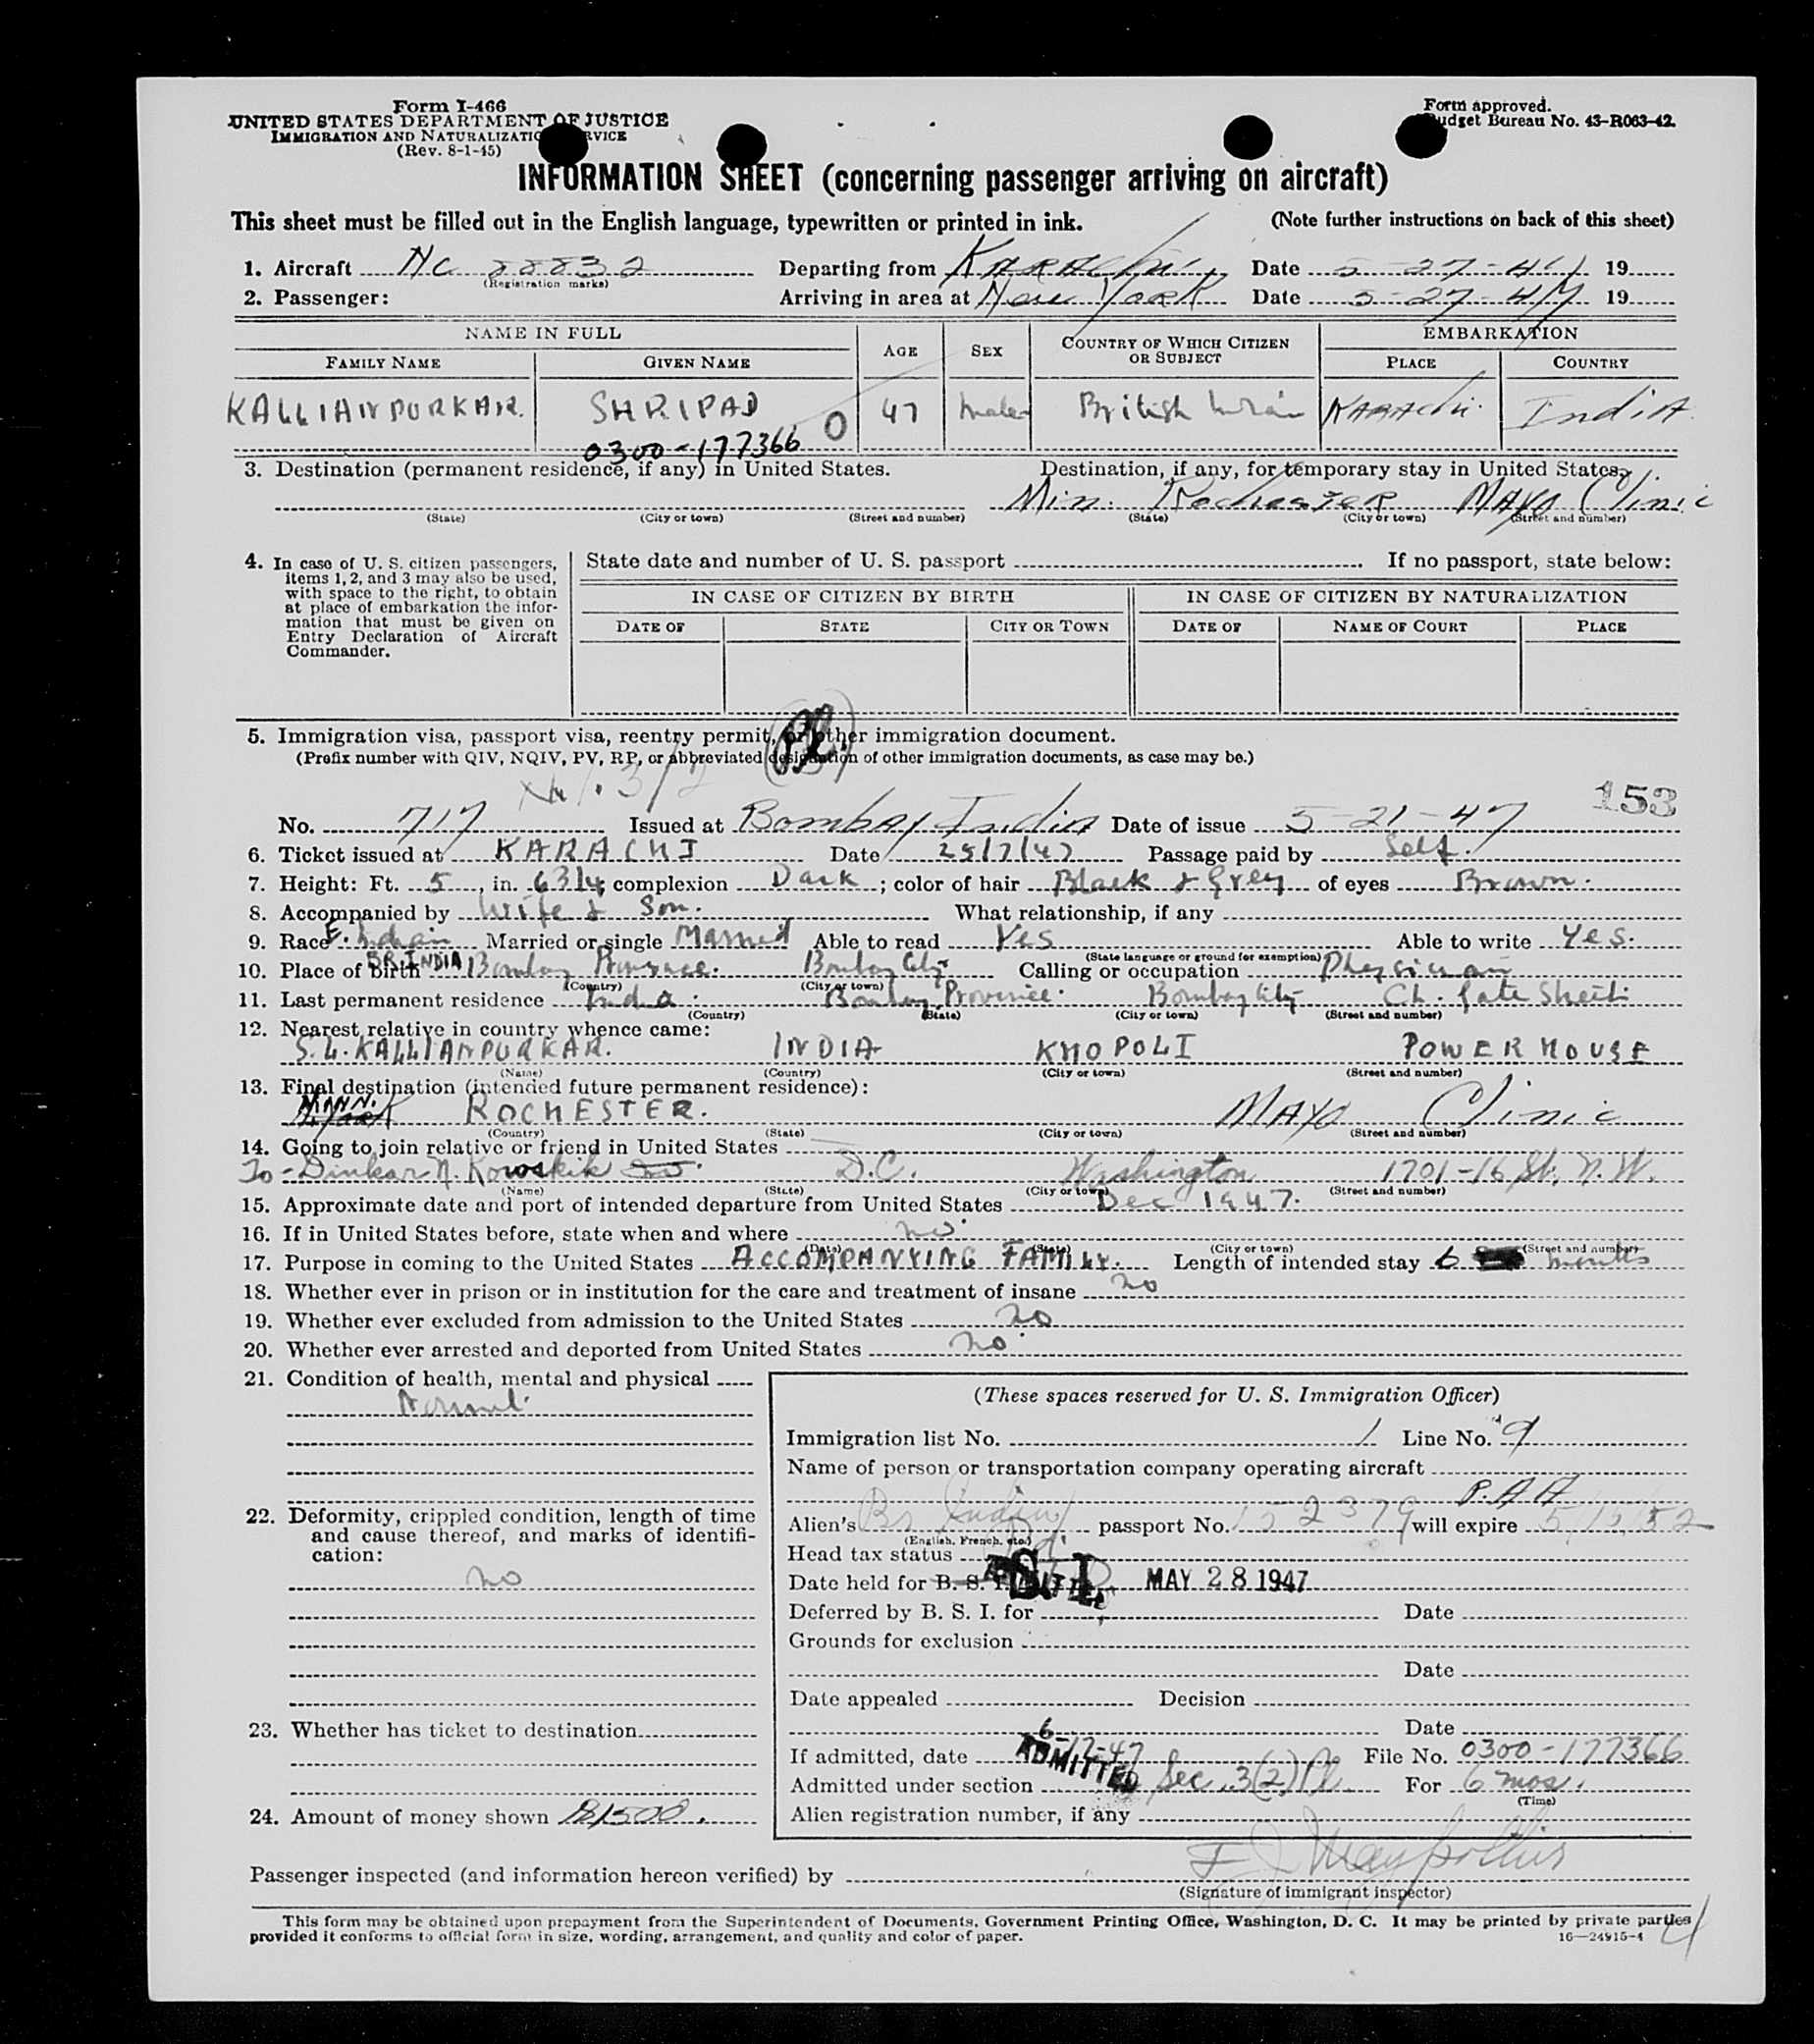 Form I-466
UNITED STATES DEPARTMENT OF JUSTICE
IMMIGRATION AND NATURALIZATION SERVICE
(Rev. 8-1-45)
Form approved.
Budget Bureau No. 43-R063-42.
INFORMATION SHEET (concerning passenger arriving on aircraft)
This sheet must be filled out in the English language, typewritten or printed in ink. (Note further instructions on back of this sheet)
1. Aircraft NC 88832 Departing from KARACHI Date 5-27-47 19
(Registration marks)
2. Passenger: Arriving in area at New York Date 5-27-47 19
NAME IN FULL AGE SEX COUNTRY OF WHICH CITIZEN OR SUBJECT EMBARKATION
FAMILY NAME GIVEN NAME PLACE COUNTRY
KALLIANPURKAR. SHRIPAD 0 47 Male British Indian KARAchi. India
0300-177366
3. Destination (permanent residence, if any) in United States. Destination, if any, for temporary stay in United States.
Min. Rochester MAYO Clinic
(State) (City or town) (Street and number) (State) (City or town) (Street and number)
4. In case of U. S. citizen passengers, items 1, 2, and 3 may also be used, with space to the right, to obtain at place of embarkation the information that must be given on Entry Declaration of Aircraft Commander.
State date and number of U. S. passport If no passport, state below:
IN CASE OF CITIZEN BY BIRTH IN CASE OF CITIZEN BY NATURALIZATION
DATE OF STATE CITY OR TOWN DATE OF NAME OF COURT PLACE
5. Immigration visa, passport visa, reentry permit, or other immigration document.
(Prefix number with QIV, NQIV, PV, RP, or abbreviated designation of other immigration documents, as case may be.)
153
No. 717 Issued at Bombay India Date of issue 5-21-47
6. Ticket issued at KARACHI Date Passage paid by Self.
7. Height: Ft. 5, in. 6 3/4; complexion Dark; color of hair Black & Grey of eyes Brown.
8. Accompanied by Wife & Son. What relationship, if any
9. Race E. Indian Married or single Married Able to read Yes Able to write Yes.
(State language or ground for exemption)
10. Place of birth BR. INDIA Bombay Province. Bombay City Calling or occupation Physician
(Country) (City or town)
11. Last permanent residence India. Bombay Province. Bombay City Ch. Gate Street
(Country) (State) (City or town) (Street and number)
12. Nearest relative in country whence came:
S. L. KALLIANPURKAR. INDIA KHOPOLI POWER HOUSE
(Name) (Country) (City or town) (Street and number)
13. Final destination (intended future permanent residence):
MINN. ROCHESTER. MAYO Clinic
(Country) (State) (City or town) (Street and number)
14. Going to join relative or friend in United States
To - Dinkar N. Kowskik D.C. Washington 1701-16 St. N. W.
(Name) (State) (City or town) (Street and number)
15. Approximate date and port of intended departure from United States Dec 1947.
16. If in United States before, state when and where no.
(Date) (State) (City or town) (Street and number)
17. Purpose in coming to the United States ACCOMPANYING FAMILY. Length of intended stay 6 months
18. Whether ever in prison or in institution for the care and treatment of insane no
19. Whether ever excluded from admission to the United States no
20. Whether ever arrested and deported from United States no
21. Condition of health, mental and physical
Normal.
22. Deformity, crippled condition, length of time and cause thereof, and marks of identification:
no
23. Whether has ticket to destination
24. Amount of money shown $1500.
(These spaces reserved for U. S. Immigration Officer)
Immigration list No. 1 Line No. 9
Name of person or transportation company operating aircraft
P.A.A
Alien's Br Indian passport No. 152379 will expire 5/15/52
(English, French, etc.)
Head tax status
Date held for B. S. I. S.I. MAY 28 1947
Deferred by B. S. I. for Date
Grounds for exclusion
Date
Date appealed Decision
Date
If admitted, date 6-17-47 File No. 0300-177366
ADMITTED
Admitted under section Sec. 3(2) Pl For 6 mos.
(Time)
Alien registration number, if any
Passenger inspected (and information hereon verified) by
(Signature of immigrant inspector)
This form may be obtained upon prepayment from the Superintendent of Documents, Government Printing Office, Washington, D. C. It may be printed by private parties
provided it conforms to official form in size, wording, arrangement, and quality and color of paper. 16—24915-4